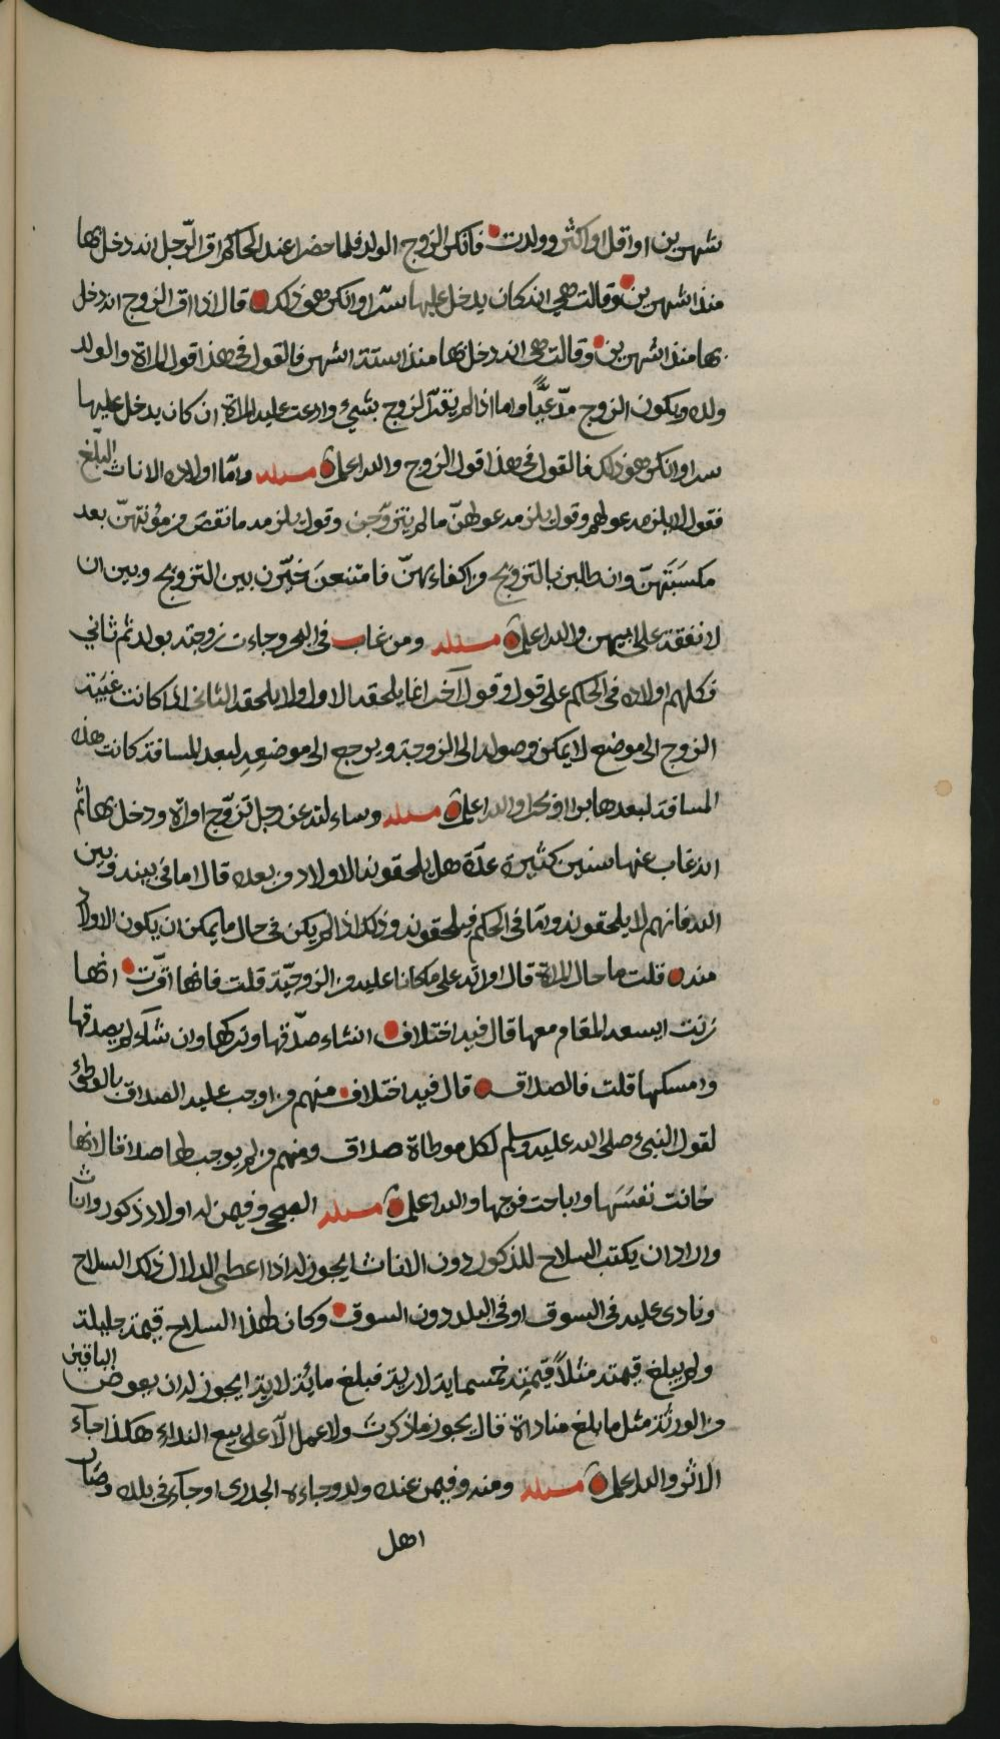 شهرين او اقل او اكثر وولدت فانكر الزوج الولد فلما حضرا عند الحاكم اقر الرّجل انه دخل بها
منذ شهرين وقالت هي انه كان يدخل عليها سرّا وانكر هو ذلك قال اذا اقر الزوج انه دخل
بها منذ شهرين وقالت هي انه دخل بها منذ ستة اشهر فالقول في هذا قول المراة والولد
ولده ويكون الزوج مدّعيًّا واما اذا لم يقرّ الزوج بشيء وادعت عليه المراة ان كان يدخل عليها
سرا وانكر هو ذلك فالقول في هذا قول الزوج والله اعلم مسئله وامّا اولاده الاناث البلّغ
فقول لا يلزمه عولهم وقول يلزمه عولهنّ ما لم يتزوّجن وقول يلزمه ما نقص من مؤنتهنّ بعد
مكسبتهنّ وان طالبن بالتزويج من اكفاءهنّ فامتنعن خيّرن بين التزويج وبين ان
لا نفقة على ابيهن والله اعلم مسئله ومن غاب في البحر وجاءت زوجته بولد ثم ثاني
فكلهم اولاده في الحكم على قول وقول آخر انما يلحقه الاول ولا يلحقه الثاني اذا كانت غيبة
الزوج الى موضع لا يمكن وصوله الى الزوجة ويرجع الى موضعه لبعد المسافة كانت هذه
المسافة لبعدها برا او بحرا والله اعلم مسئله وساءلته عن رجل تزوّج امراة ودخل بها ثم
انه غاب عنها سنين كثيرة عدّة هل يلحقونه الاولاد من بعده قال اما في بينه وبين
الله فانهم لا يلحقونه وامّا في الحكم فيلحقونه وذلك اذا لم يكن في حال ما يمكن ان يكون الاولاد
منه قلت ما حال المراة قال اولائه على ما كانا عليه من الزوجيّة قلت فانها اقرّت انها
زنت ايسعه المقام معها قال فيه اختلاف انشاء صدّقها وتركها وان شاء لم يصدقها
وامسكها قلت فالصداق قال فيه اختلاف منهم من اوجب عليه الصداق بالوطئ
لقول النبيء صلى الله عليه وسلم لكل موطاة صداق ومنهم من لم يوجب لها صداقا لانها
خانت نفسها واباحت فرجها والله اعلم مسئله الصبحي وفيمن له اولاد ذكور واناث
واراد ان يكتب السلاح للذكور دون الاناث ايجوز له اذا اعطى الدلال ذلك السلاح
ونادى عليه في السوق او في البلد دون السوق وكان لهذا السلاح قيمة جليلة
ولم يبلغ قيمته مثلاً قيمته خمسماية لارية فبلغ مائة لارية ايجوز له ان يعوض الباقين
من الورثة مثل ما بلغ مناداة قال يجوز ما ذكرت ولا عمل الّا على بيع النداء هكذا جآء
الاثر والله اعلم مسئله ومنه وفيمن عنده ولد وجاءه الجدري او جآء في بلده وصار
اهل